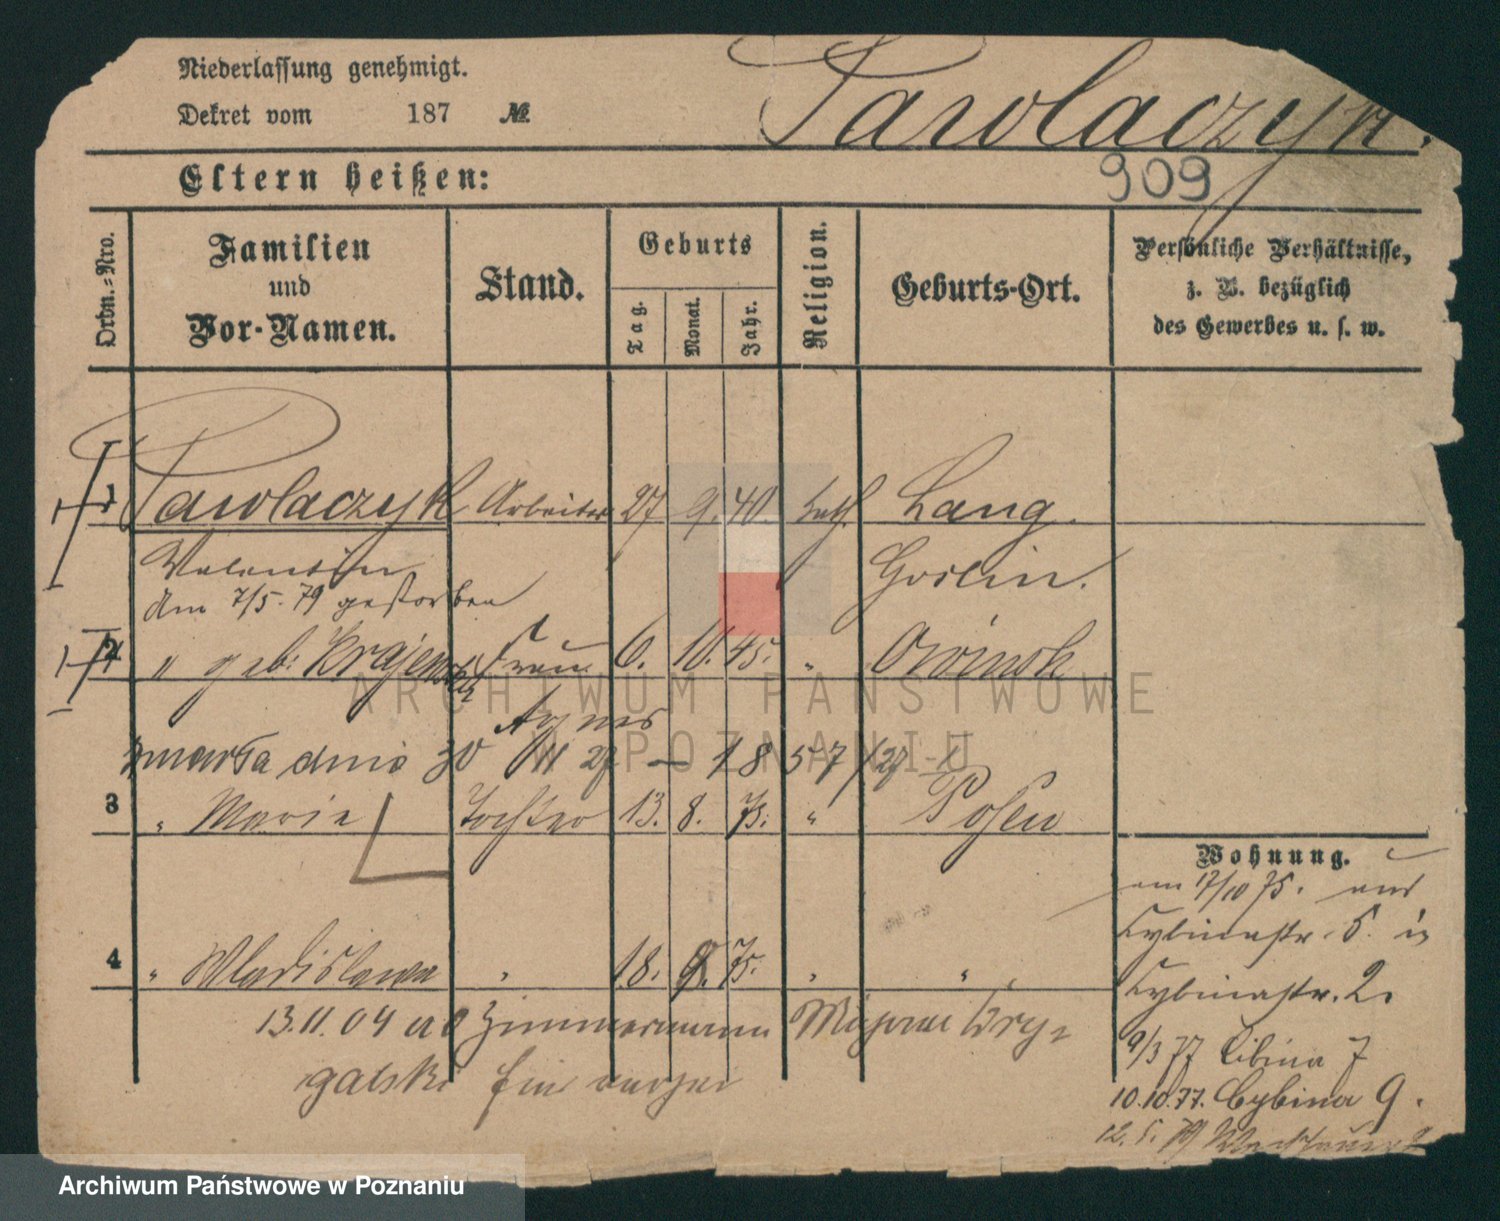 Niederlassung genehmigt.
Dekret vom 187 №
Pawlaczyk.
909
Eltern heißen:
Ordn.-Nro.
Familien und Vor-Namen.
Stand.
Geburts
Tag.
Monat.
Jahr.
Religion.
Geburts-Ort.
Persönliche Verhältnisse,
z. B. bezüglich
des Gewerbes u. s. w.
1 Pawlaczyk Arbeiter 27 9. 40. kath. Lang
Valentin Goslin.
Am 7/5. 79 gestorben
2 " geb: Frau 6. 10. 45. " Owinsk
Agnes
zmarła dnia 30 27 — 1857/27
3 " Marie Tochter 13. 8. 75. " Posen
4 " Wladislawa " 18. 75. " " "
13.11.04 Zimmermann
galski
Wohnung.
am 17/10 75. aus
Cybinastr. 5. in
Cybinastr. 2.
9/3 77 Cibina 7
10.10.77. Cybina 9.
12. 5. 79
ARCHIWUM PAŃSTWOWE
W POZNANIU
Archiwum Państwowe w Poznaniu